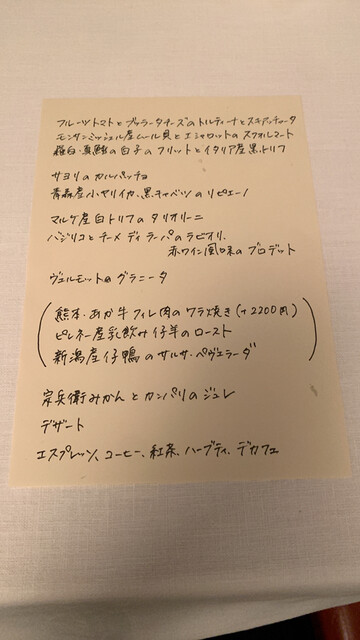 フルーツトマトとブッラータチーズのトルティーナとスキアッチャータ
モンサンミッシェル産ムール貝とエシャロットのスフォルマート
羅臼・真鱈の白子のフリットとイタリア産黒トリフ
サヨリのカルパッチョ
青森産小ヤリイカ、黒キャベツのリピエーノ
マルケ産白トリフのタリオリーニ
バジリコとチーメ ディ ラーパのラビオリ、
赤ワイン風味のブロデット
ヴェルモットのグラニータ
熊本・あか牛フィレ肉のワラ焼き(+2200円)
ピレネー産乳飲み仔羊のロースト
新潟産仔鴨のサルサ・ペヴェラーダ
宗兵衛みかんとカンパリのジュレ
デザート
エスプレッソ、コーヒー、紅茶、ハーブティ、デカフェ